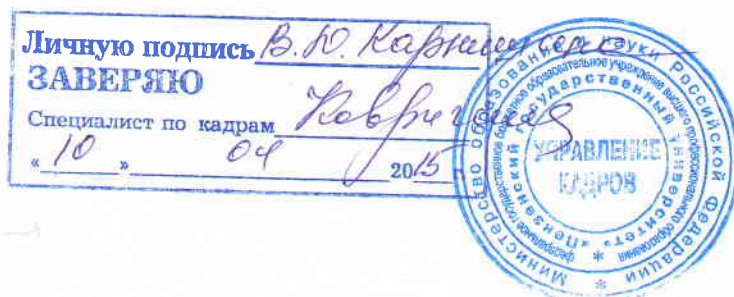 Личную подпись В.Ю.
ЗАВЕРЯЮ
Специалист по кадрам
« 10 » 04 2015
Министерство образования и науки Российской Федерации
федеральное государственное бюджетное образовательное учреждение высшего профессионального образования
«Пензенский государственный университет»
УПРАВЛЕНИЕ
КАДРОВ